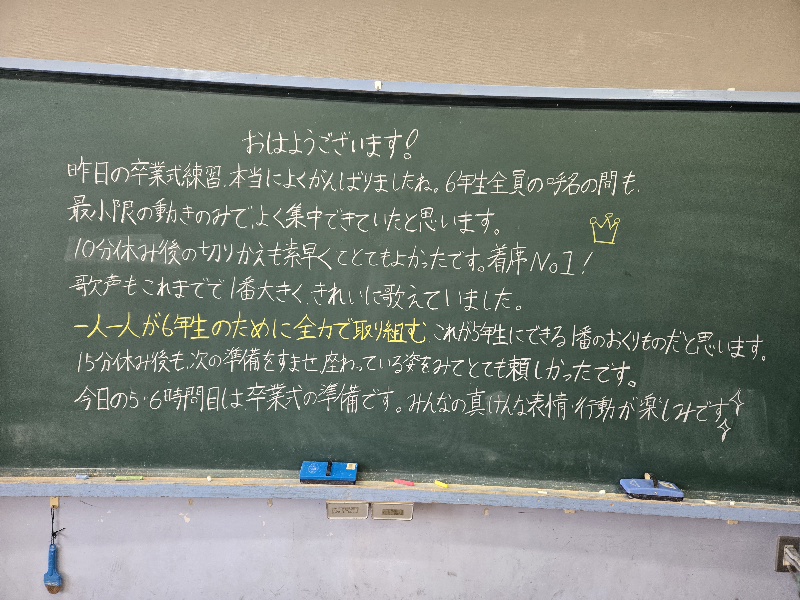 おはようございます!
昨日の卒業式練習、本当によくがんばりましたね。6年生全員の呼名の間も、
最小限の動きのみで、よく集中できていたと思います。
10分休み後の切りかえも素早くてとてもよかったです。着席No1!
歌声もこれまでで1番大きく、きれいに歌えていました。
一人一人が6年生のために全力で取り組む、これが5年生にできる1番のおくりものだと思います。
15分休み後も、次の準備をすませ、座わっている姿をみてとても頼しかったです。
今日の5・6時間目は卒業式の準備です。みんなの真けんな表情・行動が楽しみです